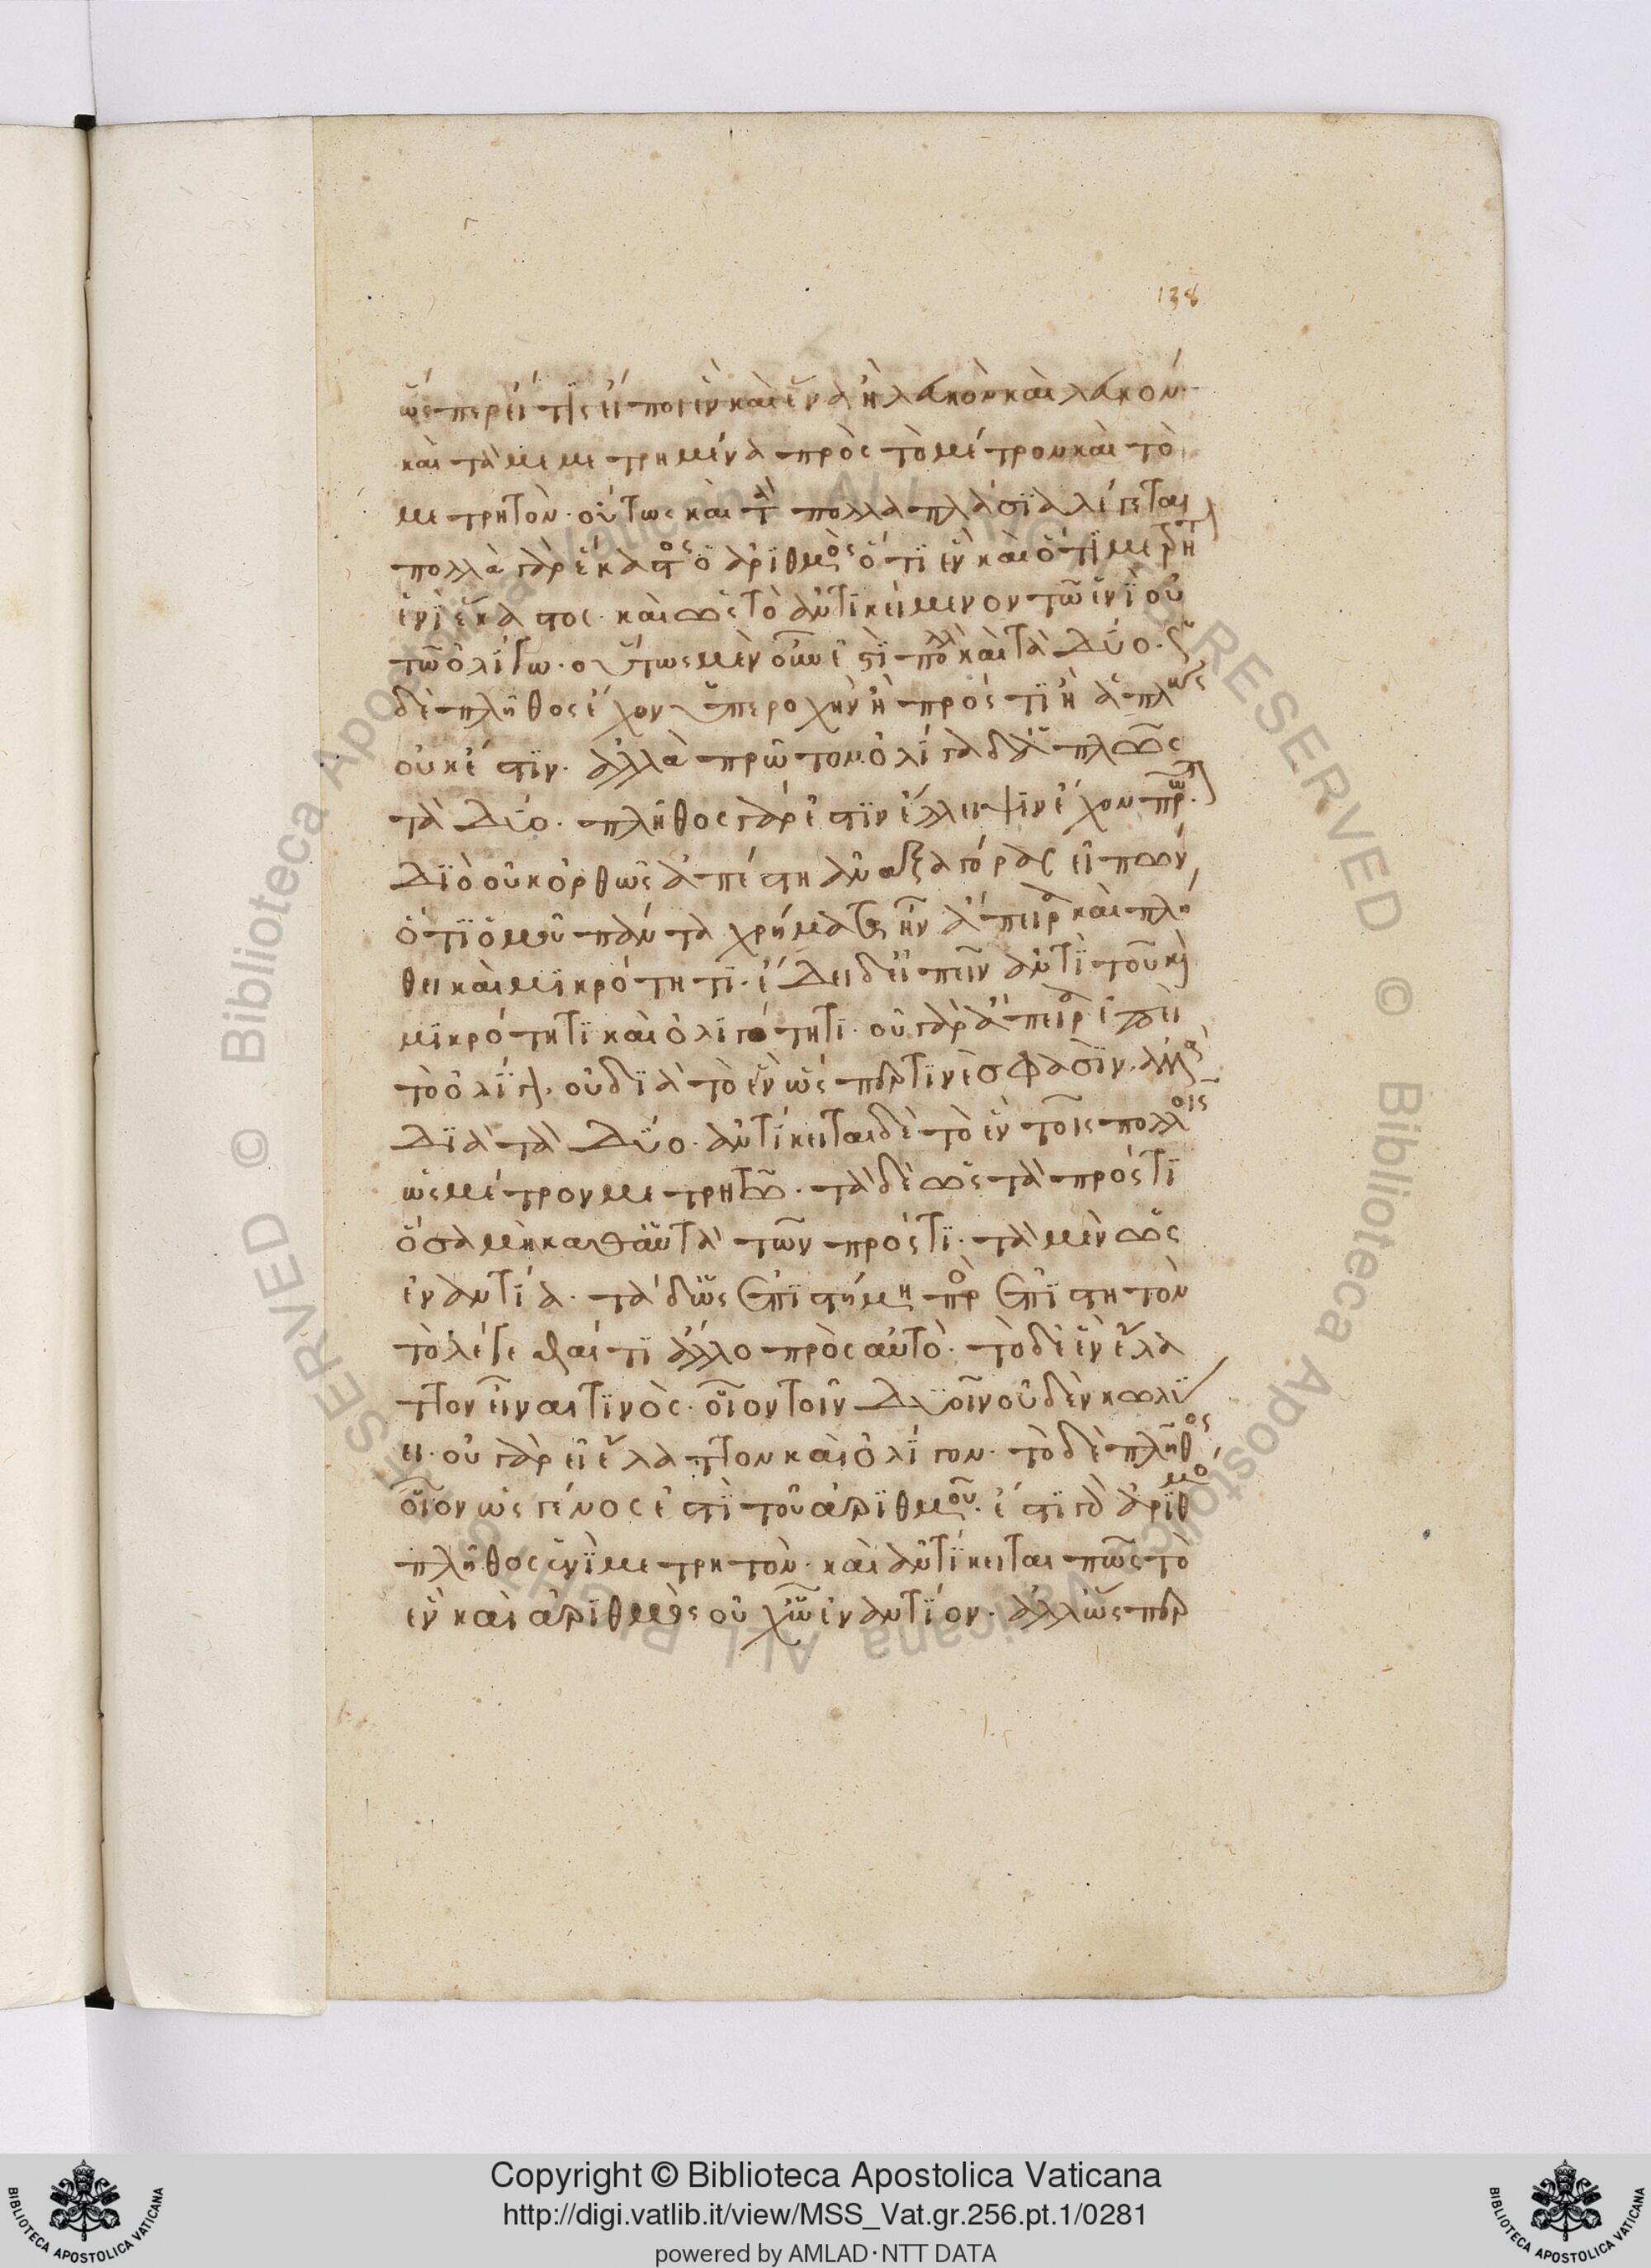 138
ὥσπερ εἴ τις εἴποι ἓν καὶ ἕνα ἢ λευκὸν καὶ λευκόν·
καὶ τὰ μεμετρημένα πρὸς τὸ μέτρον καὶ τὸ
μετρητόν· οὕτως καὶ τὰ πολλαπλάσια λέγεται
πολλὰ γὰρ ἕκαστος ὁ ἀριθμὸς ὅτι ἓν καὶ ὅτι μετρητ
ἑνὶ ἕκαστος· καὶ ὡς τὸ ἀντικείμενον τῶ ἑνὶ οὐ
τῶ ὀλίγω· οὕτως μὲν οὖν ἐστὶ πολλὰ καὶ τὰ δύο·
δὲ πλῆθος ἔχον ὑπεροχὴν ἢ πρός τι ἢ ἁπλῶς
οὐκ ἔστιν· ἀλλὰ πρῶτον· ὀλίγα δ' ἁπλῶς
τὰ δύο· πλῆθος γάρ ἐστιν ἔλλειψιν ἔχον πρῶτον·
Διὸ οὐκ ὀρθῶς ἀπέστη ἀναξαγόρας εἰπὼν,
ὅτι ὁμοῦ πάντα χρήματα ἦν ἄπειρα καὶ πλή
θει καὶ μικρότητι· ἔδει δ' εἰπεῖν ἀντὶ τοῦ καὶ
μικρότητι καὶ ὀλιγότητι· οὐ γὰρ ἄπειρα ἐπεὶ
τὸ ὀλίγον· οὐ διὰ τὸ ἓν ὥσπερ τινές φασιν· ἀλλὰ
Διὰ τὰ δύο· ἀντίκειται δὲ τὸ ἓν τοῖς πολλοῖς
ὡς μέτρον μετρητῶ· τὰ δὲ ὡς τὰ πρός τι
ὅσα μὴ καθ' αὑτὰ τῶν πρός τι· τὰ μὲν ὡς
ἐναντία· τὰ δ' ὡς ἐπιστήμη πρὸς ἐπιστητὸν
τὸ λέγεσθαί τι ἄλλο πρὸς αὐτό· τὸ δὲ ἓν ἔλα
ττον εἶναι τινὸς· οἷον τοῖν δυοῖν οὐδὲν κωλύ
ει· οὐ γὰρ εἰ ἔλαττον καὶ ὀλίγον· τὸ δὲ πλῆθος
οἷον ὡς γένος ἐστὶ τοῦ ἀριθμοῦ· ἔστι γὰρ ἀριθμὸ
πλῆθος ἑνὶ μετρητόν· καὶ ἀντίκειται πῶς τὸ
ἓν καὶ ἀριθμὸς οὐχ ὡς ἐναντίον· ἀλλ' ὥσπερ
Copyright © Biblioteca Apostolica Vaticana
http://digi.vatlib.it/view/MSS_Vat.gr.256.pt.1/0281
powered by AMLAD·NTT DATA